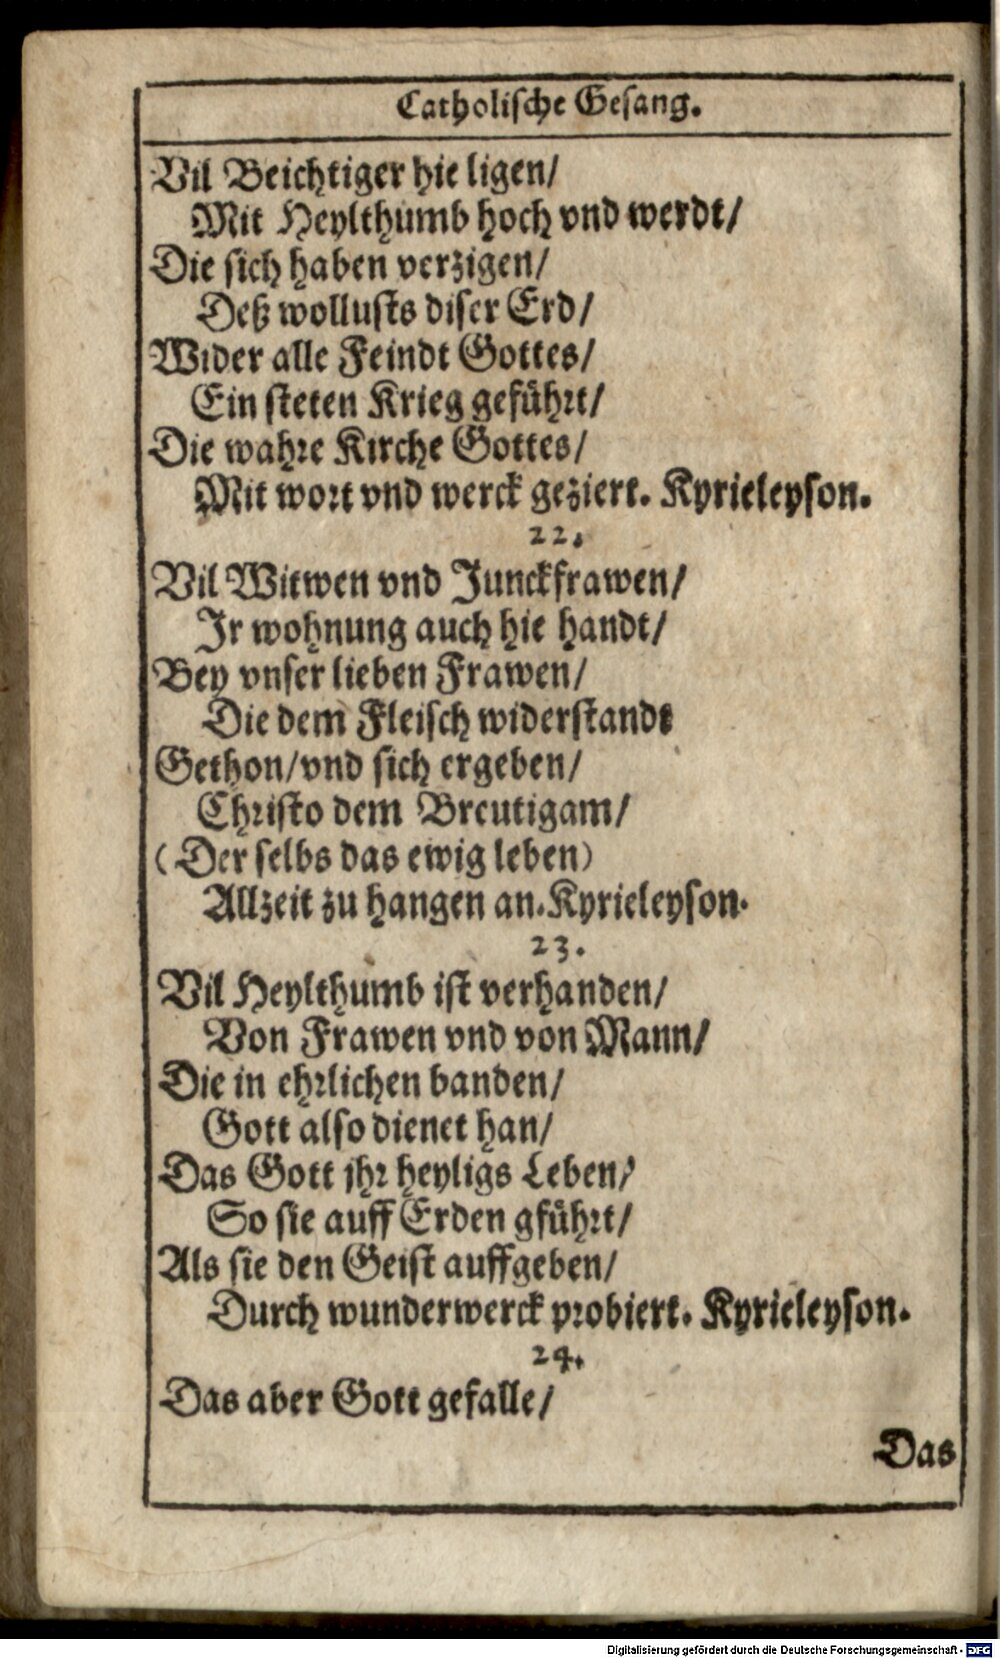 Catholische Gesang.
Vil Beichtiger hie ligen/
Mit Heylthumb hoch vnd werdt/
Die sich haben verzigen/
Deß wollusts diser Erd/
Wider alle Feindt Gottes/
Ein steten Krieg geführt/
Die wahre Kirche Gottes/
Mit wort vnd werck geziert. Kyrieleyson.
22.
Vil Witwen vnd Junckfrawen/
Jr wohnung auch hie handt/
Bey vnser lieben Frawen/
Die dem Fleisch widerstandt
Gethon/vnd sich ergeben/
Christo dem Breutigam/
(Der selbs das ewig leben)
Allzeit zu hangen an. Kyrieleyson.
23.
Vil Heylthumb ist verhanden/
Von Frawen vnd von Mann/
Die in ehrlichen banden/
Gott also dienet han/
Das Gott jhr heyligs Leben/
So sie auff Erden gführt/
Als sie den Geist auffgeben/
Durch wunderwerck probiert. Kyrieleyson.
24.
Das aber Gott gefalle/
Das
Digitalisierung gefördert durch die Deutsche Forschungsgemeinschaft - DFG